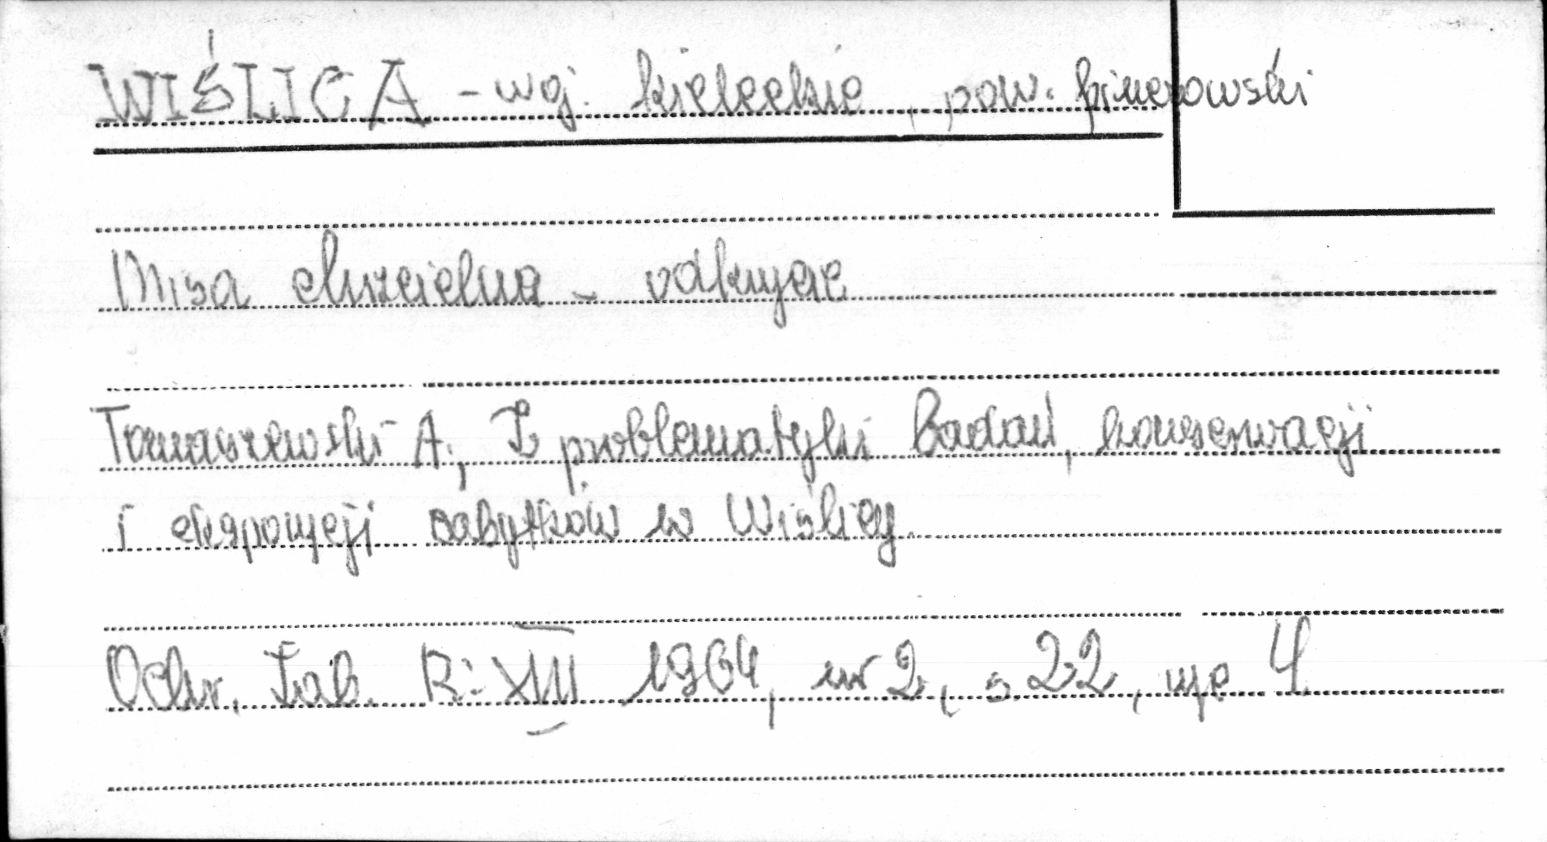 WIŚLICA - woj. kieleckie, pow. pińczowski
Misa chrzcielna - odkrycie
Tomaszewski A., Z problematyki badań, konserwacji
i ekspozycji zabytków w Wiślicy
Ochr. Zab. R. XVII 1964, nr 2, s 22, ryc 4